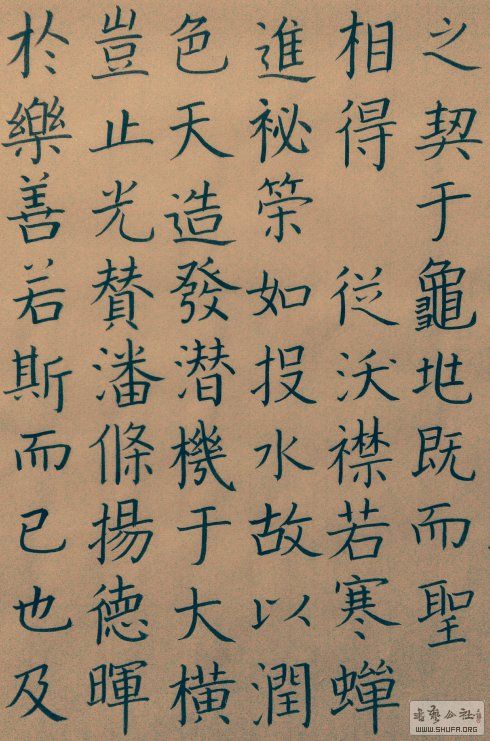 之契于龜地既而聖
相得 從沃襟若寒蟬
進祕策如投水故以潤
色天造發潛機于大橫
豈止光賛潘條揚德暉
於樂善若斯而已也及
书艺公社
WWW.SHUFA.ORG